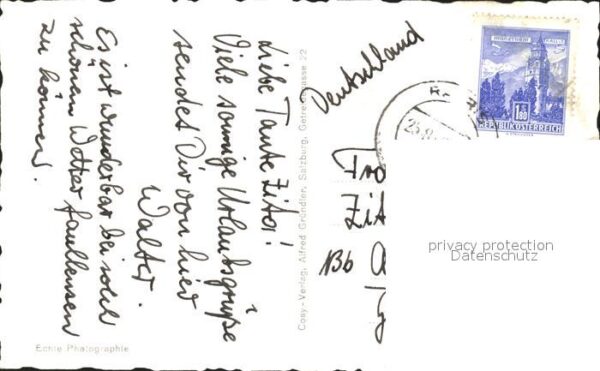 Liebe Tante Zita!
Viele sonnige Urlaubsgrüße
sendet Dir von hier
Walter.
Es ist wunderbar bei solch
schönem Wetter faullenzen
zu können.
Echte Photographie
Cosy-Verlag, Alfred Gründler, Salzburg, Getreidegasse 22
Deutschland
1.80
REPUBLIK ÖSTERREICH
25.8.
Zit
privacy protection
Datenschutz